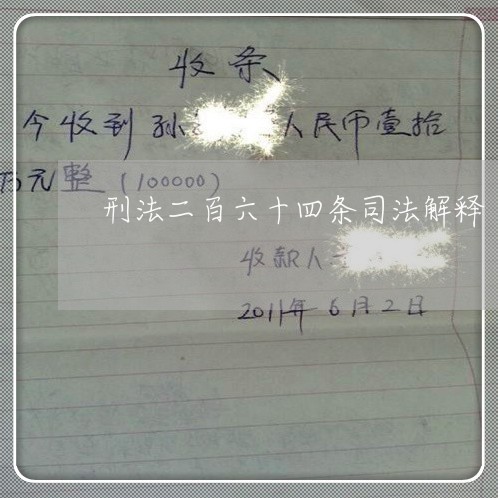 收条
今收到孙 人民币壹拾
万元整(100000)
刑法二百六十四条司法解释
收款人
2011年6月2日